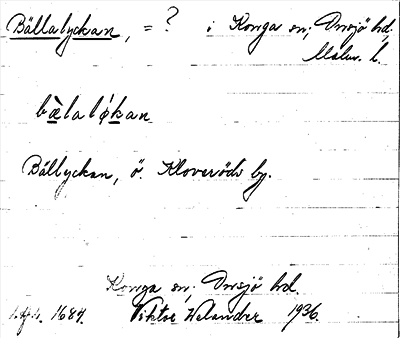 Bällalyckan, = ? i Konga sn; Onsjö hd.
Malm. l.
bæ̀lalǿkan
Bällyckan, ö. Kloveröds by.
Konga sn; Onsjö hd.
1684. Viktor Welander 1936.